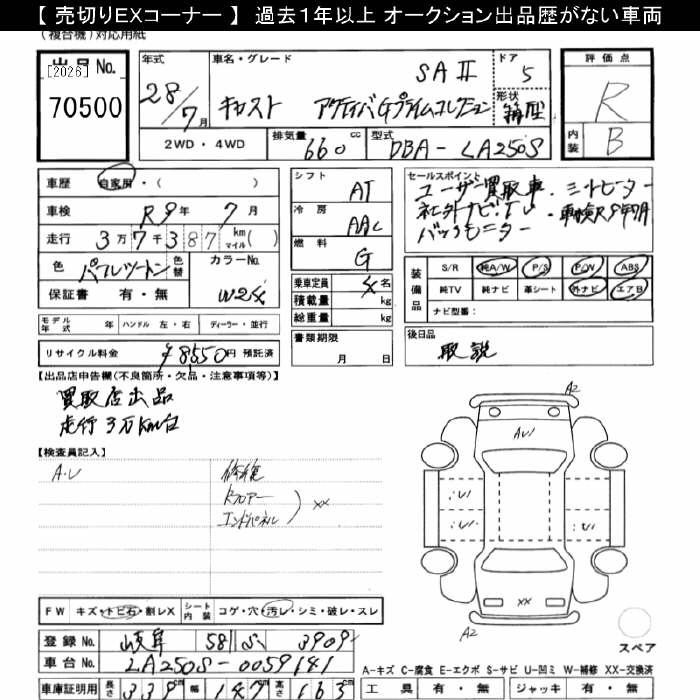 【 売切りEXコーナー 】 過去1年以上 オークション出品歴がない車両
(複合機)対応用紙
出品No. [2026] 70500
年式 28/7月
車名・グレード SAⅡ
キャスト アクティバGプライムコレクション
ドア 5
形状 箱型
評価点 R
内装 B
2WD・4WD 排気量 660 cc 型式 DBA-LA250S
車歴 自家用・( )
車検 R9年 7月
走行 3万7千387 km マイル( )
色 パールツートン 色替 カラーNo. W24
保証書 有・無
シフト AT
冷房 AAC
燃料 G
乗車定員 4名
積載量 kg
総重量 kg
書類期限 月 日
セールスポイント
ユーザー買取車・シートヒーター
社外ナビ・TV・車検R9年7月
バックモニター
装備品 S/R 純A/W P/S P/W ABS
純TV 純ナビ 革シート 外ナビ エアB
ナビ型番:
モデル年式 年 ハンドル 左・右 ディーラー・並行
リサイクル料金 ¥8550円 預託済
後日品 取説
【出品店申告欄(不良箇所・欠品・注意事項等)】
買取店出品
走行3万km台
【検査員記入】
A・U 修復
Rフロアー
エンドパネル ) XX
A2
AU1
XX
A2
FW キズ・トビ石・割レX シート内装 コゲ・穴・汚レ・シミ・破レ・スレ
登録No. 岐阜 58 3909
車台No. LA250S-0059141
スペア
A-キズ C-腐食 E-エクボ S-サビ U-凹ミ W-補修 XX-交換済
車庫証明用 長さ 339 幅 147 高さ 163
工具 有・無 ジャッキ 有・無